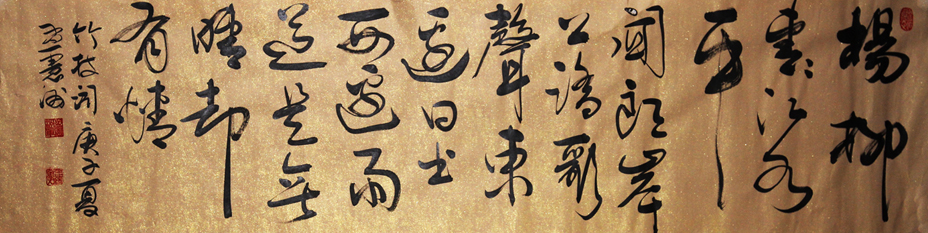 楊柳
青〻江水
平
聞郎岸
上踏歌
聲東
邊日出
西邊雨
道是無
晴却
有情
竹枝詞 庚子夏